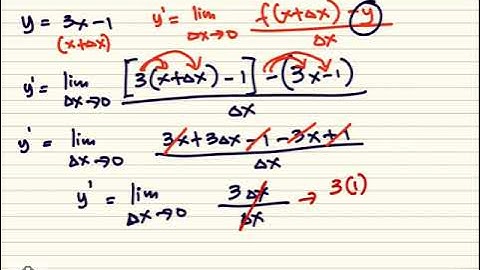 y = 3x - 1 y' = lim Δx→0 f(x+Δx) - y / Δx
(x+Δx)
y' = lim Δx→0 [3(x+Δx) - 1] - (3x - 1) / Δx
y' = lim Δx→0 3x + 3Δx - 1 - 3x + 1 / Δx
y' = lim Δx→0 3Δx / Δx → 3(1)